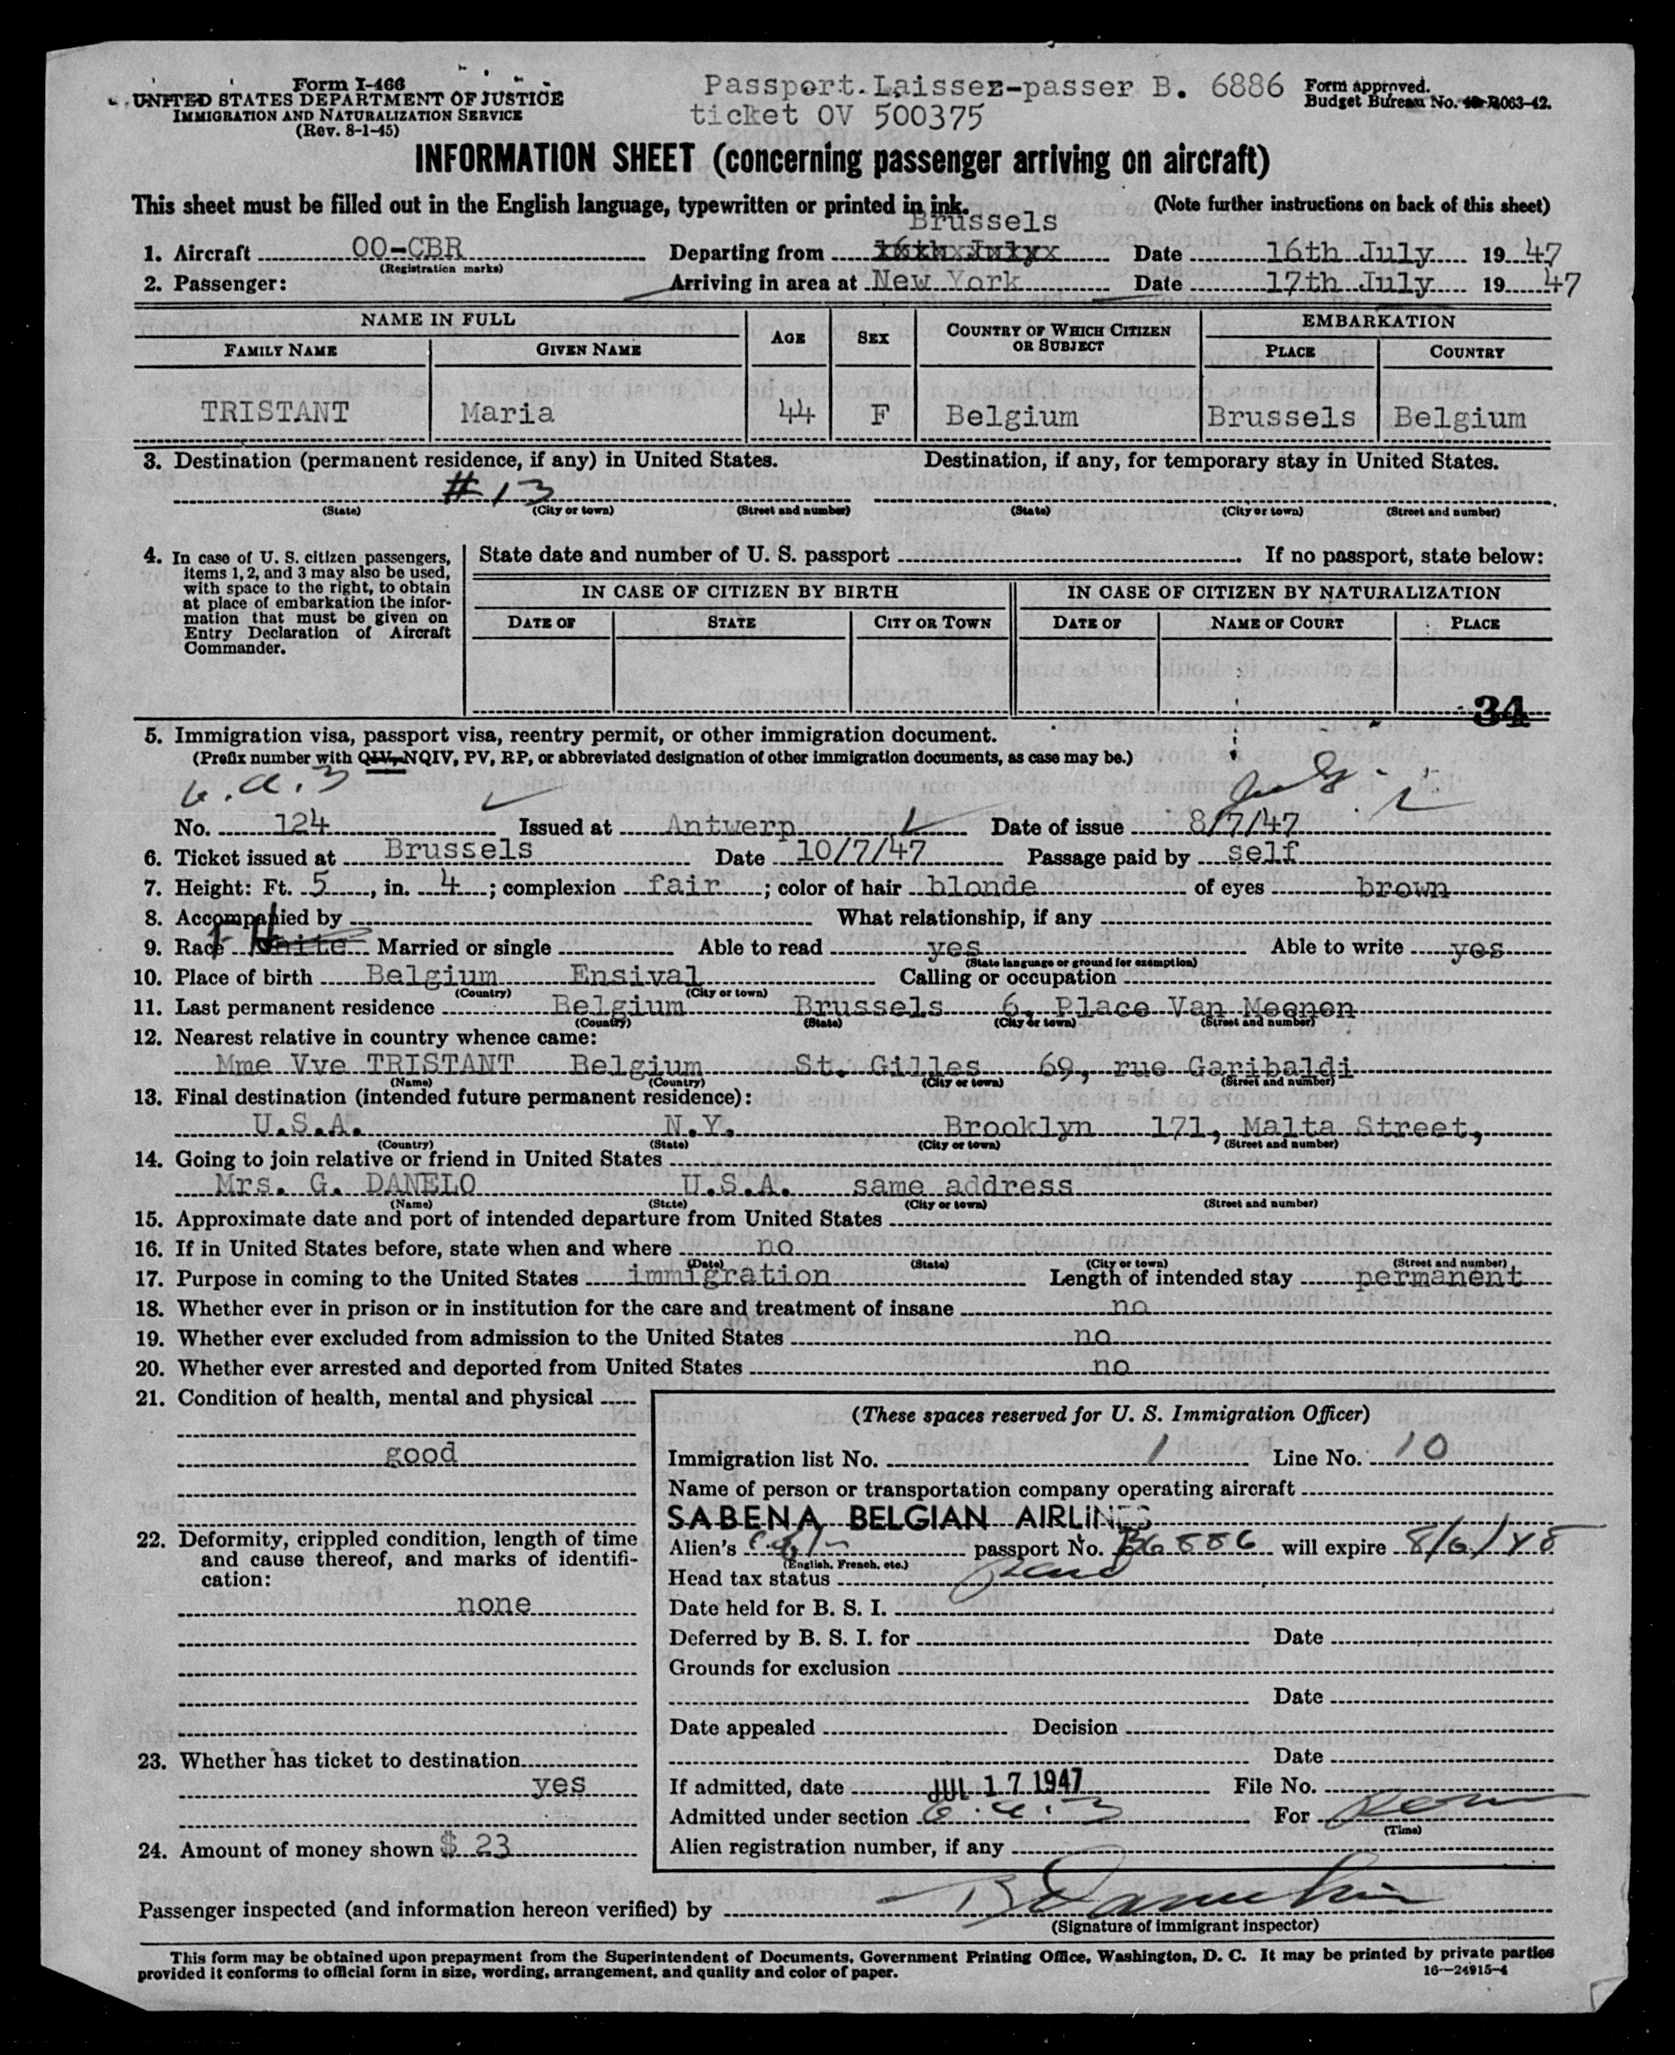 Form I-466
UNITED STATES DEPARTMENT OF JUSTICE
IMMIGRATION AND NATURALIZATION SERVICE
(Rev. 8-1-45)
Passport.Laissez-passer B. 6886
ticket OV 500375
Form approved.
Budget Bureau No. R063-42.
INFORMATION SHEET (concerning passenger arriving on aircraft)
This sheet must be filled out in the English language, typewritten or printed in ink.
(Note further instructions on back of this sheet)
Brussels
1. Aircraft OO-CBR Departing from 16th July Date 16th July 1947
(Registration marks)
2. Passenger: Arriving in area at New York Date 17th July 1947
NAME IN FULL AGE SEX COUNTRY OF WHICH CITIZEN OR SUBJECT EMBARKATION
FAMILY NAME GIVEN NAME PLACE COUNTRY
TRISTANT Maria 44 F Belgium Brussels Belgium
3. Destination (permanent residence, if any) in United States. Destination, if any, for temporary stay in United States.
# 13
(State) (City or town) (Street and number) (State) (City or town) (Street and number)
4. In case of U. S. citizen passengers,
items 1, 2, and 3 may also be used,
with space to the right, to obtain
at place of embarkation the infor-
mation that must be given on
Entry Declaration of Aircraft
Commander.
State date and number of U. S. passport If no passport, state below:
IN CASE OF CITIZEN BY BIRTH IN CASE OF CITIZEN BY NATURALIZATION
DATE OF STATE CITY OR TOWN DATE OF NAME OF COURT PLACE
34
5. Immigration visa, passport visa, reentry permit, or other immigration document.
(Prefix number with QIV, NQIV, PV, RP, or abbreviated designation of other immigration documents, as case may be.)
6.a.3
No. 124 Issued at Antwerp Date of issue 8/7/47
6. Ticket issued at Brussels Date 10/7/47 Passage paid by self
7. Height: Ft. 5, in. 4; complexion fair; color of hair blonde of eyes brown
8. Accompanied by What relationship, if any
9. Race White Married or single Able to read yes Able to write yes
(State language or ground for exemption)
10. Place of birth Belgium Ensival Calling or occupation
(Country) (City or town)
11. Last permanent residence Belgium Brussels 6, Place Van Meenen
(Country) (State) (City or town) (Street and number)
12. Nearest relative in country whence came:
Mme Vve TRISTANT Belgium St. Gilles 69, rue Garibaldi
(Name) (Country) (City or town) (Street and number)
13. Final destination (intended future permanent residence):
U.S.A. N.Y. Brooklyn 171, Malta Street,
(Country) (State) (City or town) (Street and number)
14. Going to join relative or friend in United States
Mrs. G. DANELO U.S.A. same address
(Name) (State) (City or town) (Street and number)
15. Approximate date and port of intended departure from United States
16. If in United States before, state when and where no
(Date) (State) (City or town) (Street and number)
17. Purpose in coming to the United States immigration Length of intended stay permanent
18. Whether ever in prison or in institution for the care and treatment of insane no
19. Whether ever excluded from admission to the United States no
20. Whether ever arrested and deported from United States no
21. Condition of health, mental and physical
good
22. Deformity, crippled condition, length of time
and cause thereof, and marks of identifi-
cation:
none
23. Whether has ticket to destination
yes
24. Amount of money shown $ 23
(These spaces reserved for U. S. Immigration Officer)
Immigration list No. 1 Line No. 10
Name of person or transportation company operating aircraft
SABENA BELGIAN AIRLINES
Alien's passport No. B6886 will expire 8/6/48
(English, French, etc.)
Head tax status
Date held for B. S. I.
Deferred by B. S. I. for Date
Grounds for exclusion
Date
Date appealed Decision
Date
If admitted, date JUL 17 1947 File No.
Admitted under section 6.a.3 For
(Time)
Alien registration number, if any
Passenger inspected (and information hereon verified) by
(Signature of immigrant inspector)
This form may be obtained upon prepayment from the Superintendent of Documents, Government Printing Office, Washington, D. C. It may be printed by private parties
provided it conforms to official form in size, wording, arrangement, and quality and color of paper.
16—24915-4